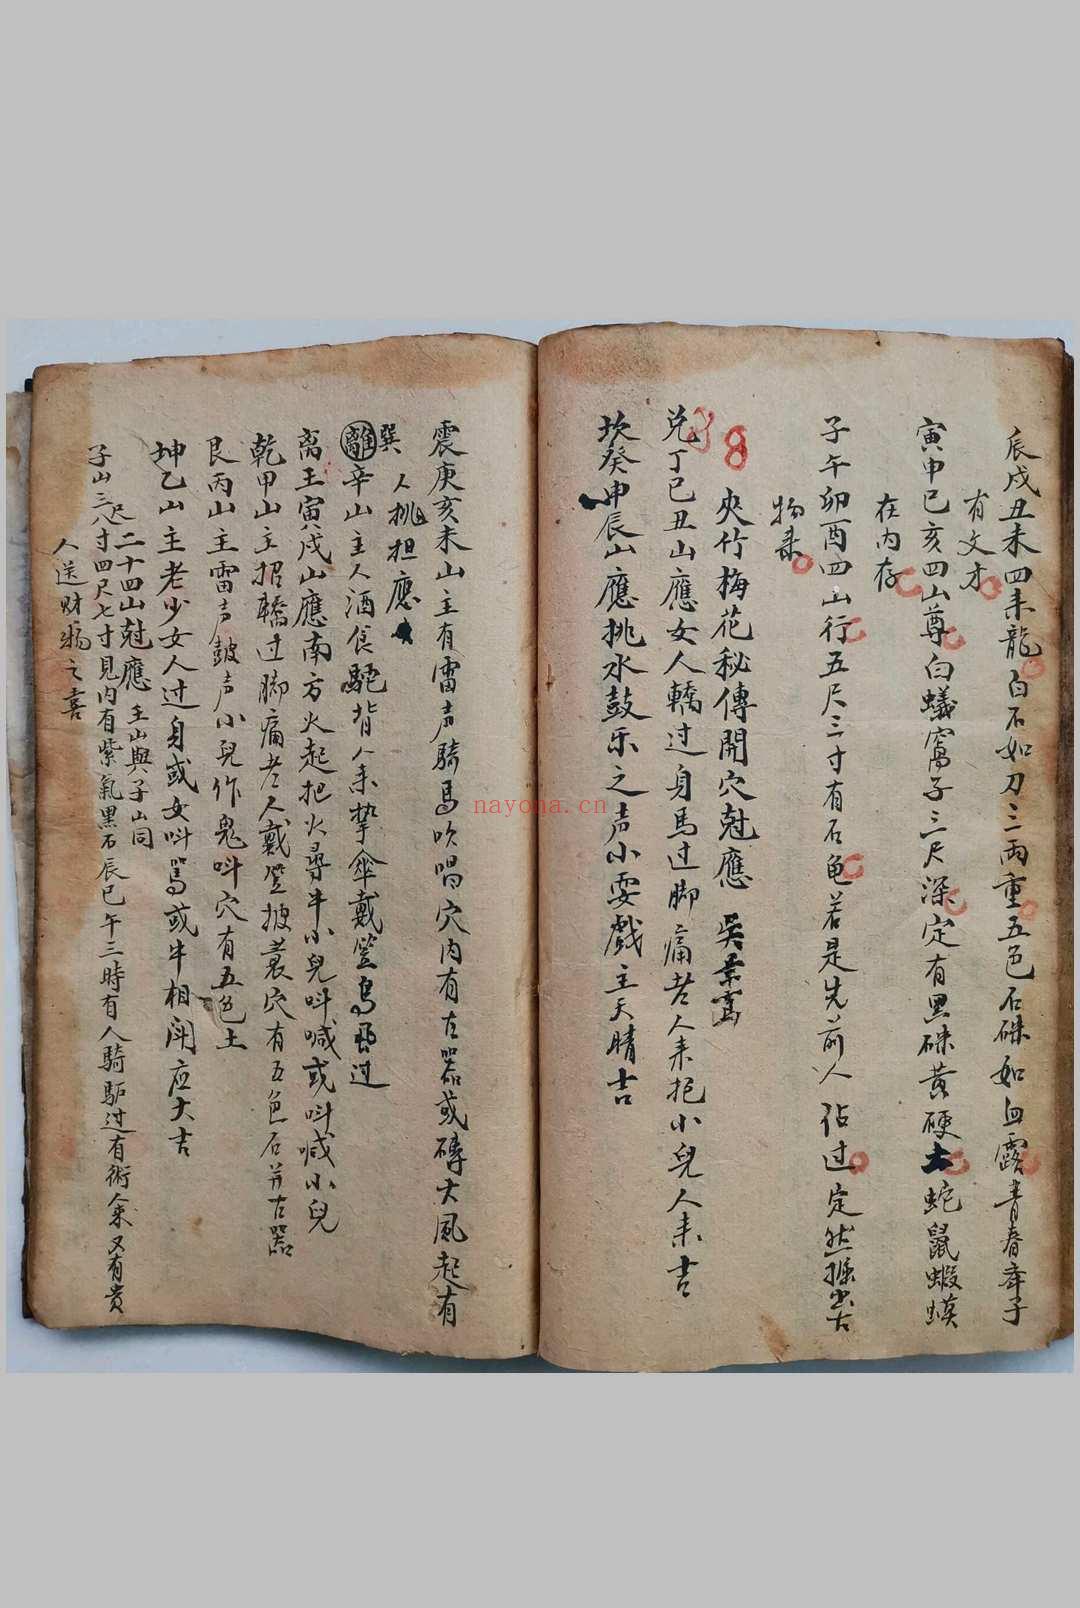 辰戌丑未四来龍白石如刀三両重五色石硃如血露青春年子
有文才
寅申巳亥四山尊白蟻窩子三尺深定有黑硃黄硬土蛇鼠蝦蟆
在内存
子午卯酉四山行五尺三寸有石龟若是先前人佔过定然古
物来
38
夾竹梅花秘傳開穴尅應 吴景鸾
兑丁巳丑山應女人轎过身馬过脚痛老人来抱小兒人来吉
坎癸申辰山應挑水鼓乐之声小耍戲主天晴吉
震庚亥未山主有雷声騎馬吹唱穴内有古器或磚大風起有
人挑担應
巽
離辛山主人酒食駝背人来拏傘戴笠鳥飛过
离壬寅戌山應南方火起把火尋牛小兒呌喊或呌喊小兒
乾甲山主招轎过脚痛老人戴笠披蓑穴有五色石并古器
艮丙山主雷声鼓声小兒作鬼呌穴有五色土
坤乙山主老少女人过身或女呌罵或牛相闹应大吉
二十四山尅應 壬山與子山同
子山三尺八寸四尺七寸見内有紫氣黑石辰巳午三時有人騎驴过有術人来又有贵
人送财物之喜
nayona.cn